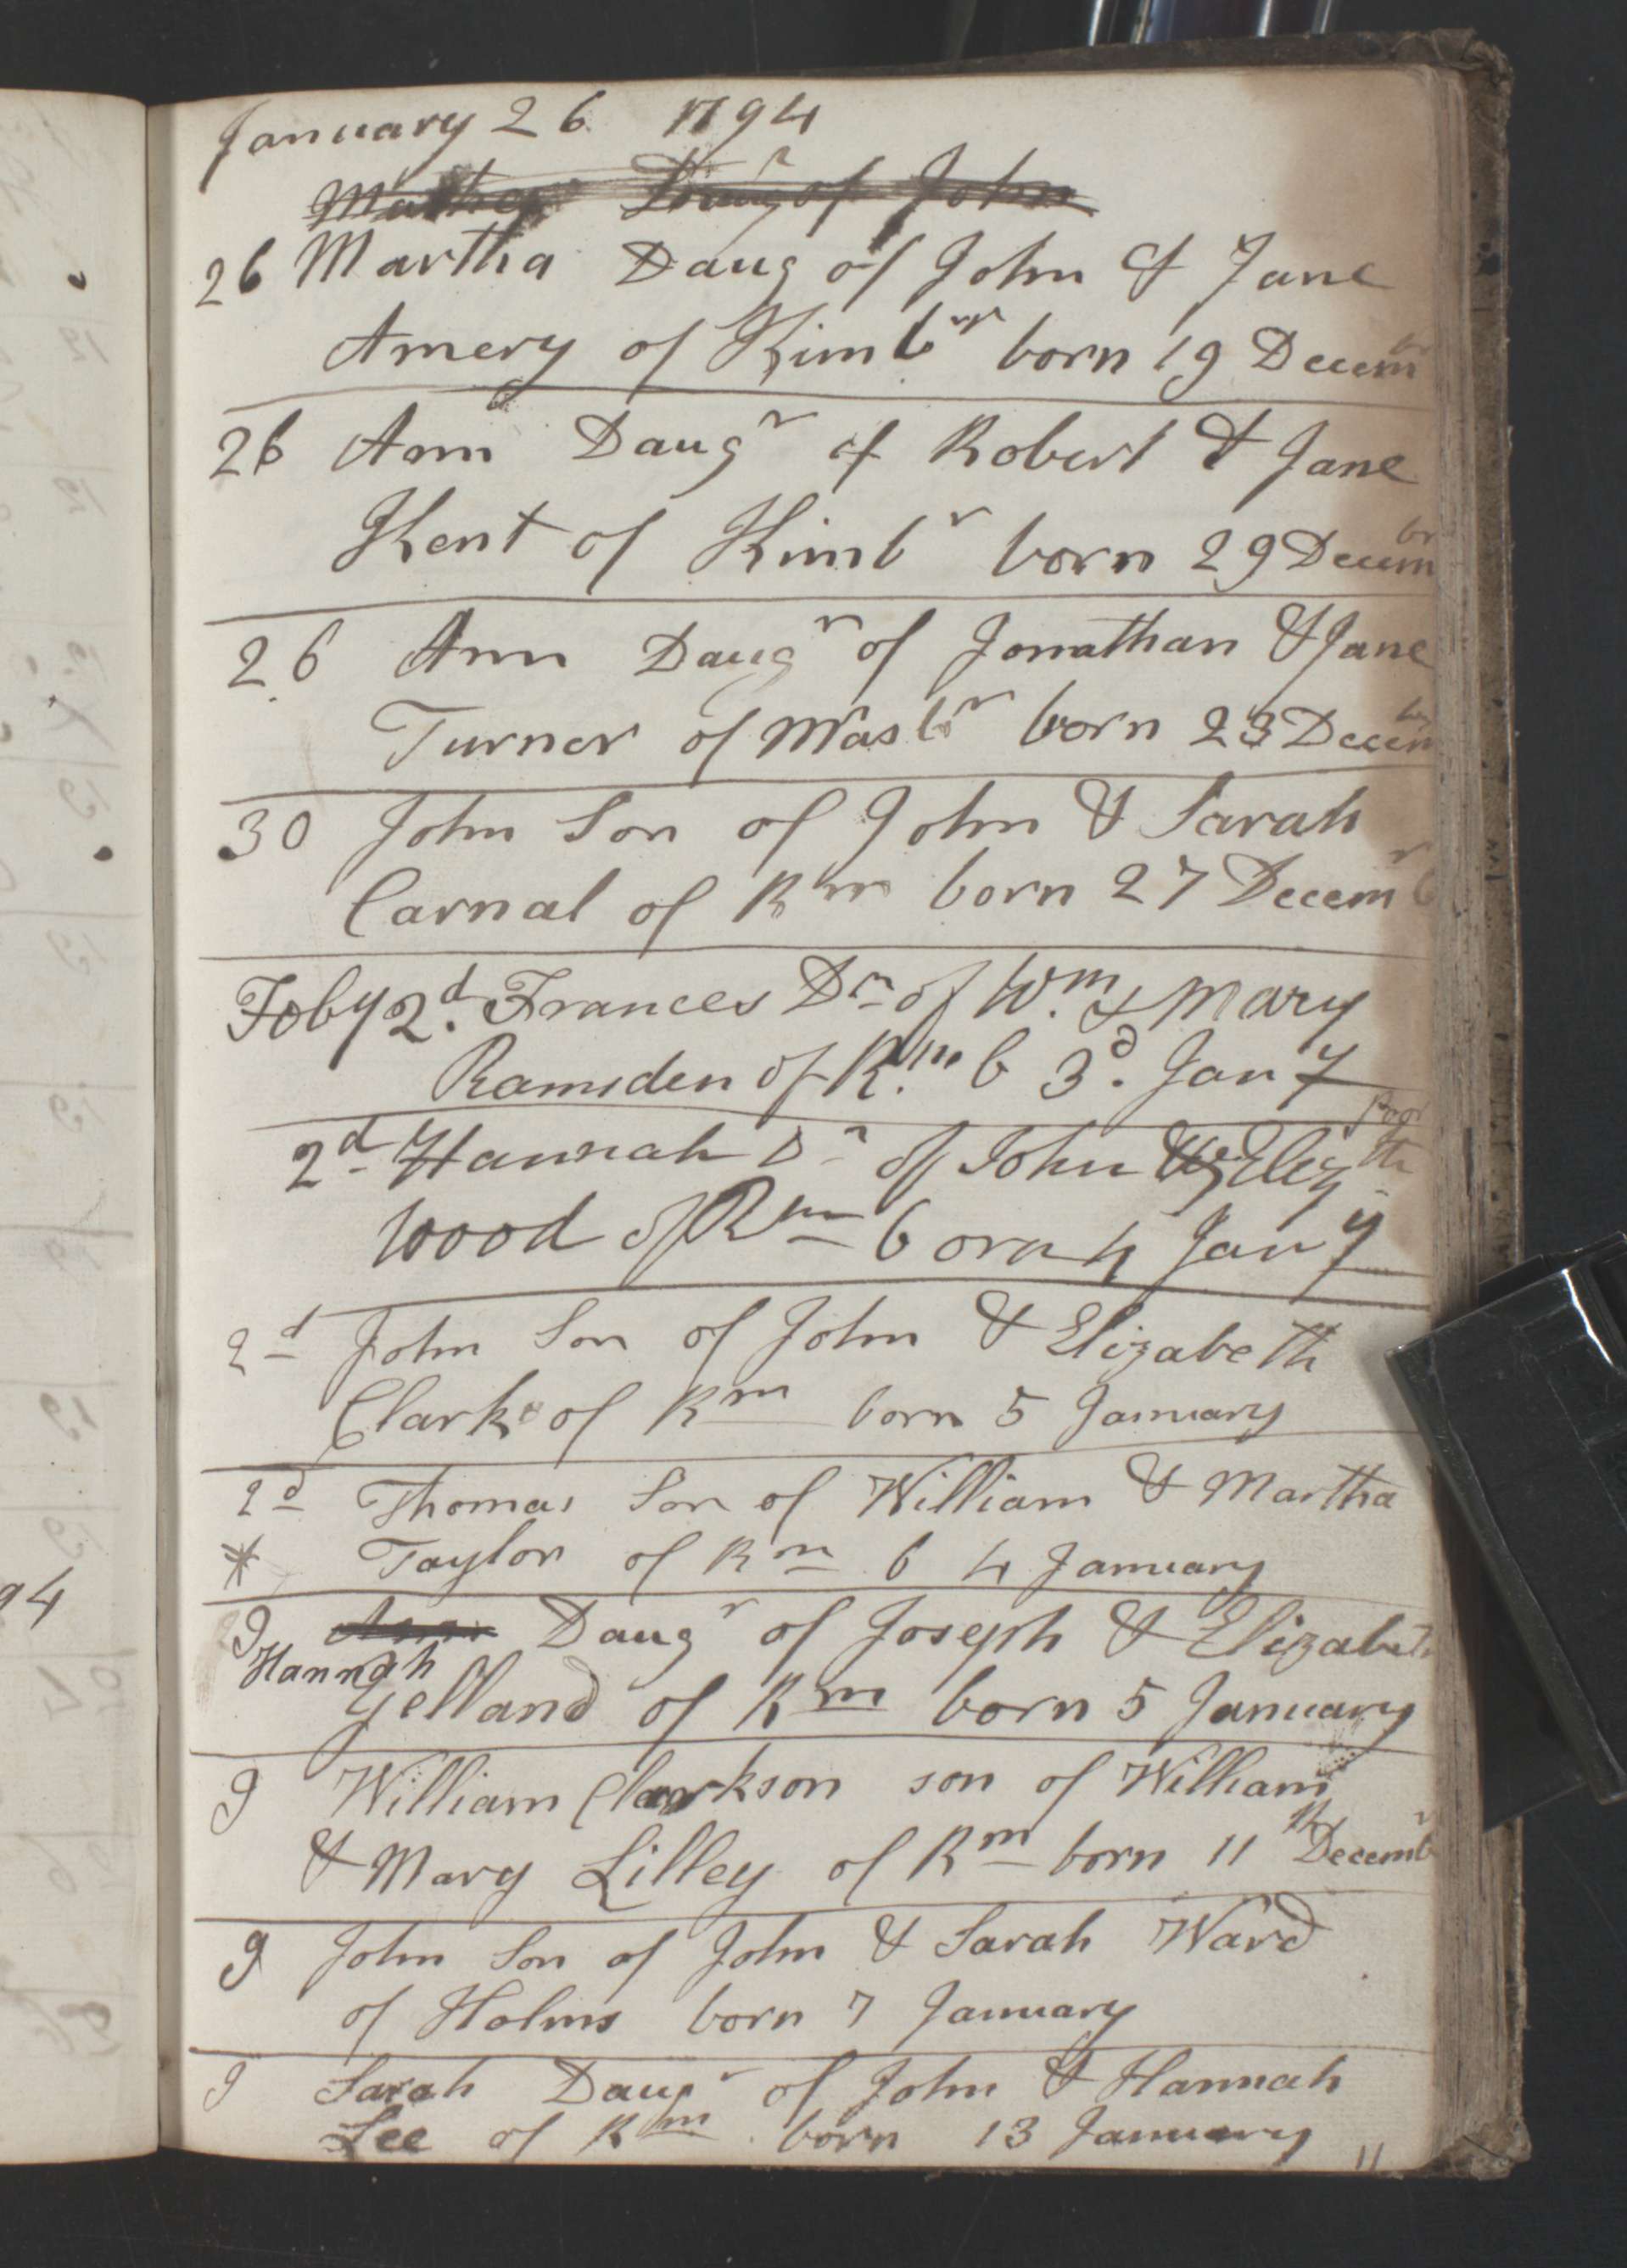 January 26 1794
Daug of John
26 Martha Daug of John & Jane
Amery of Kimbr born 19 Decembr
26 Ann Daugr of Robert & Jane
Kent of Kimbr born 29 Decembr
26 Ann Daugr of Jonathan & Jane
Turner of Masbr born 23 Decembr
30 John Son of John & Sarah
Carnal of Rm born 27 Decembr
Feby 2d. Frances Dr of Wm. & Mary
Ramsden of Rm b 3d. Jany
poor
2d Hannah Dr of John & Elizth
Wood of Rm born 4 Jany
2d John Son of John & Elizabeth
Clark of Rm born 5 January
2d Thomas Son of William & Martha
* Taylor of Rm b 4 January
9 Ann Daugr of Joseph & Elizabeth
Hannah
Yelland of Rm born 5 January
9 William Clarkson son of William
& Mary Lilley of Rm born 11th Decembr
9 John Son of John & Sarah Ward
of Holms born 7 January
9 Sarah Daugr of John & Hannah
Lee of Rm born 13 January
11
94